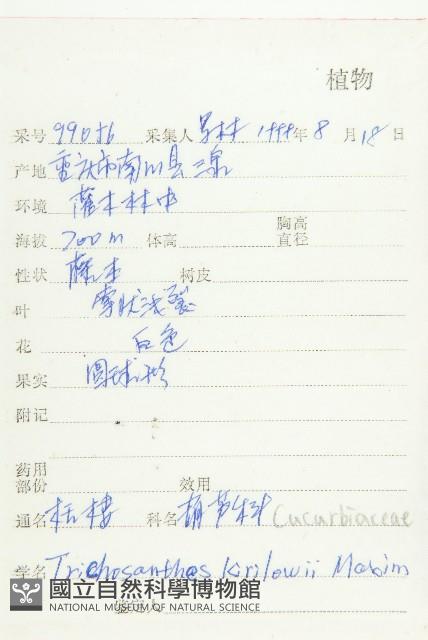 植物
采号 990 采集人 1999年 8 月 18 日
产地 重庆市南川县三泉
环境 灌木林中
海拔 700m 体高 胸高直径
性状 藤本 树皮
叶 掌状浅裂
花 白色
果实 圆球形
附记
药用部份 效用
通名 栝楼 科名 葫芦科 Cucurbiaceae
学名 Trichosanthes Kirilowii Maxim
國立自然科學博物館
NATIONAL MUSEUM OF NATURAL SCIENCE